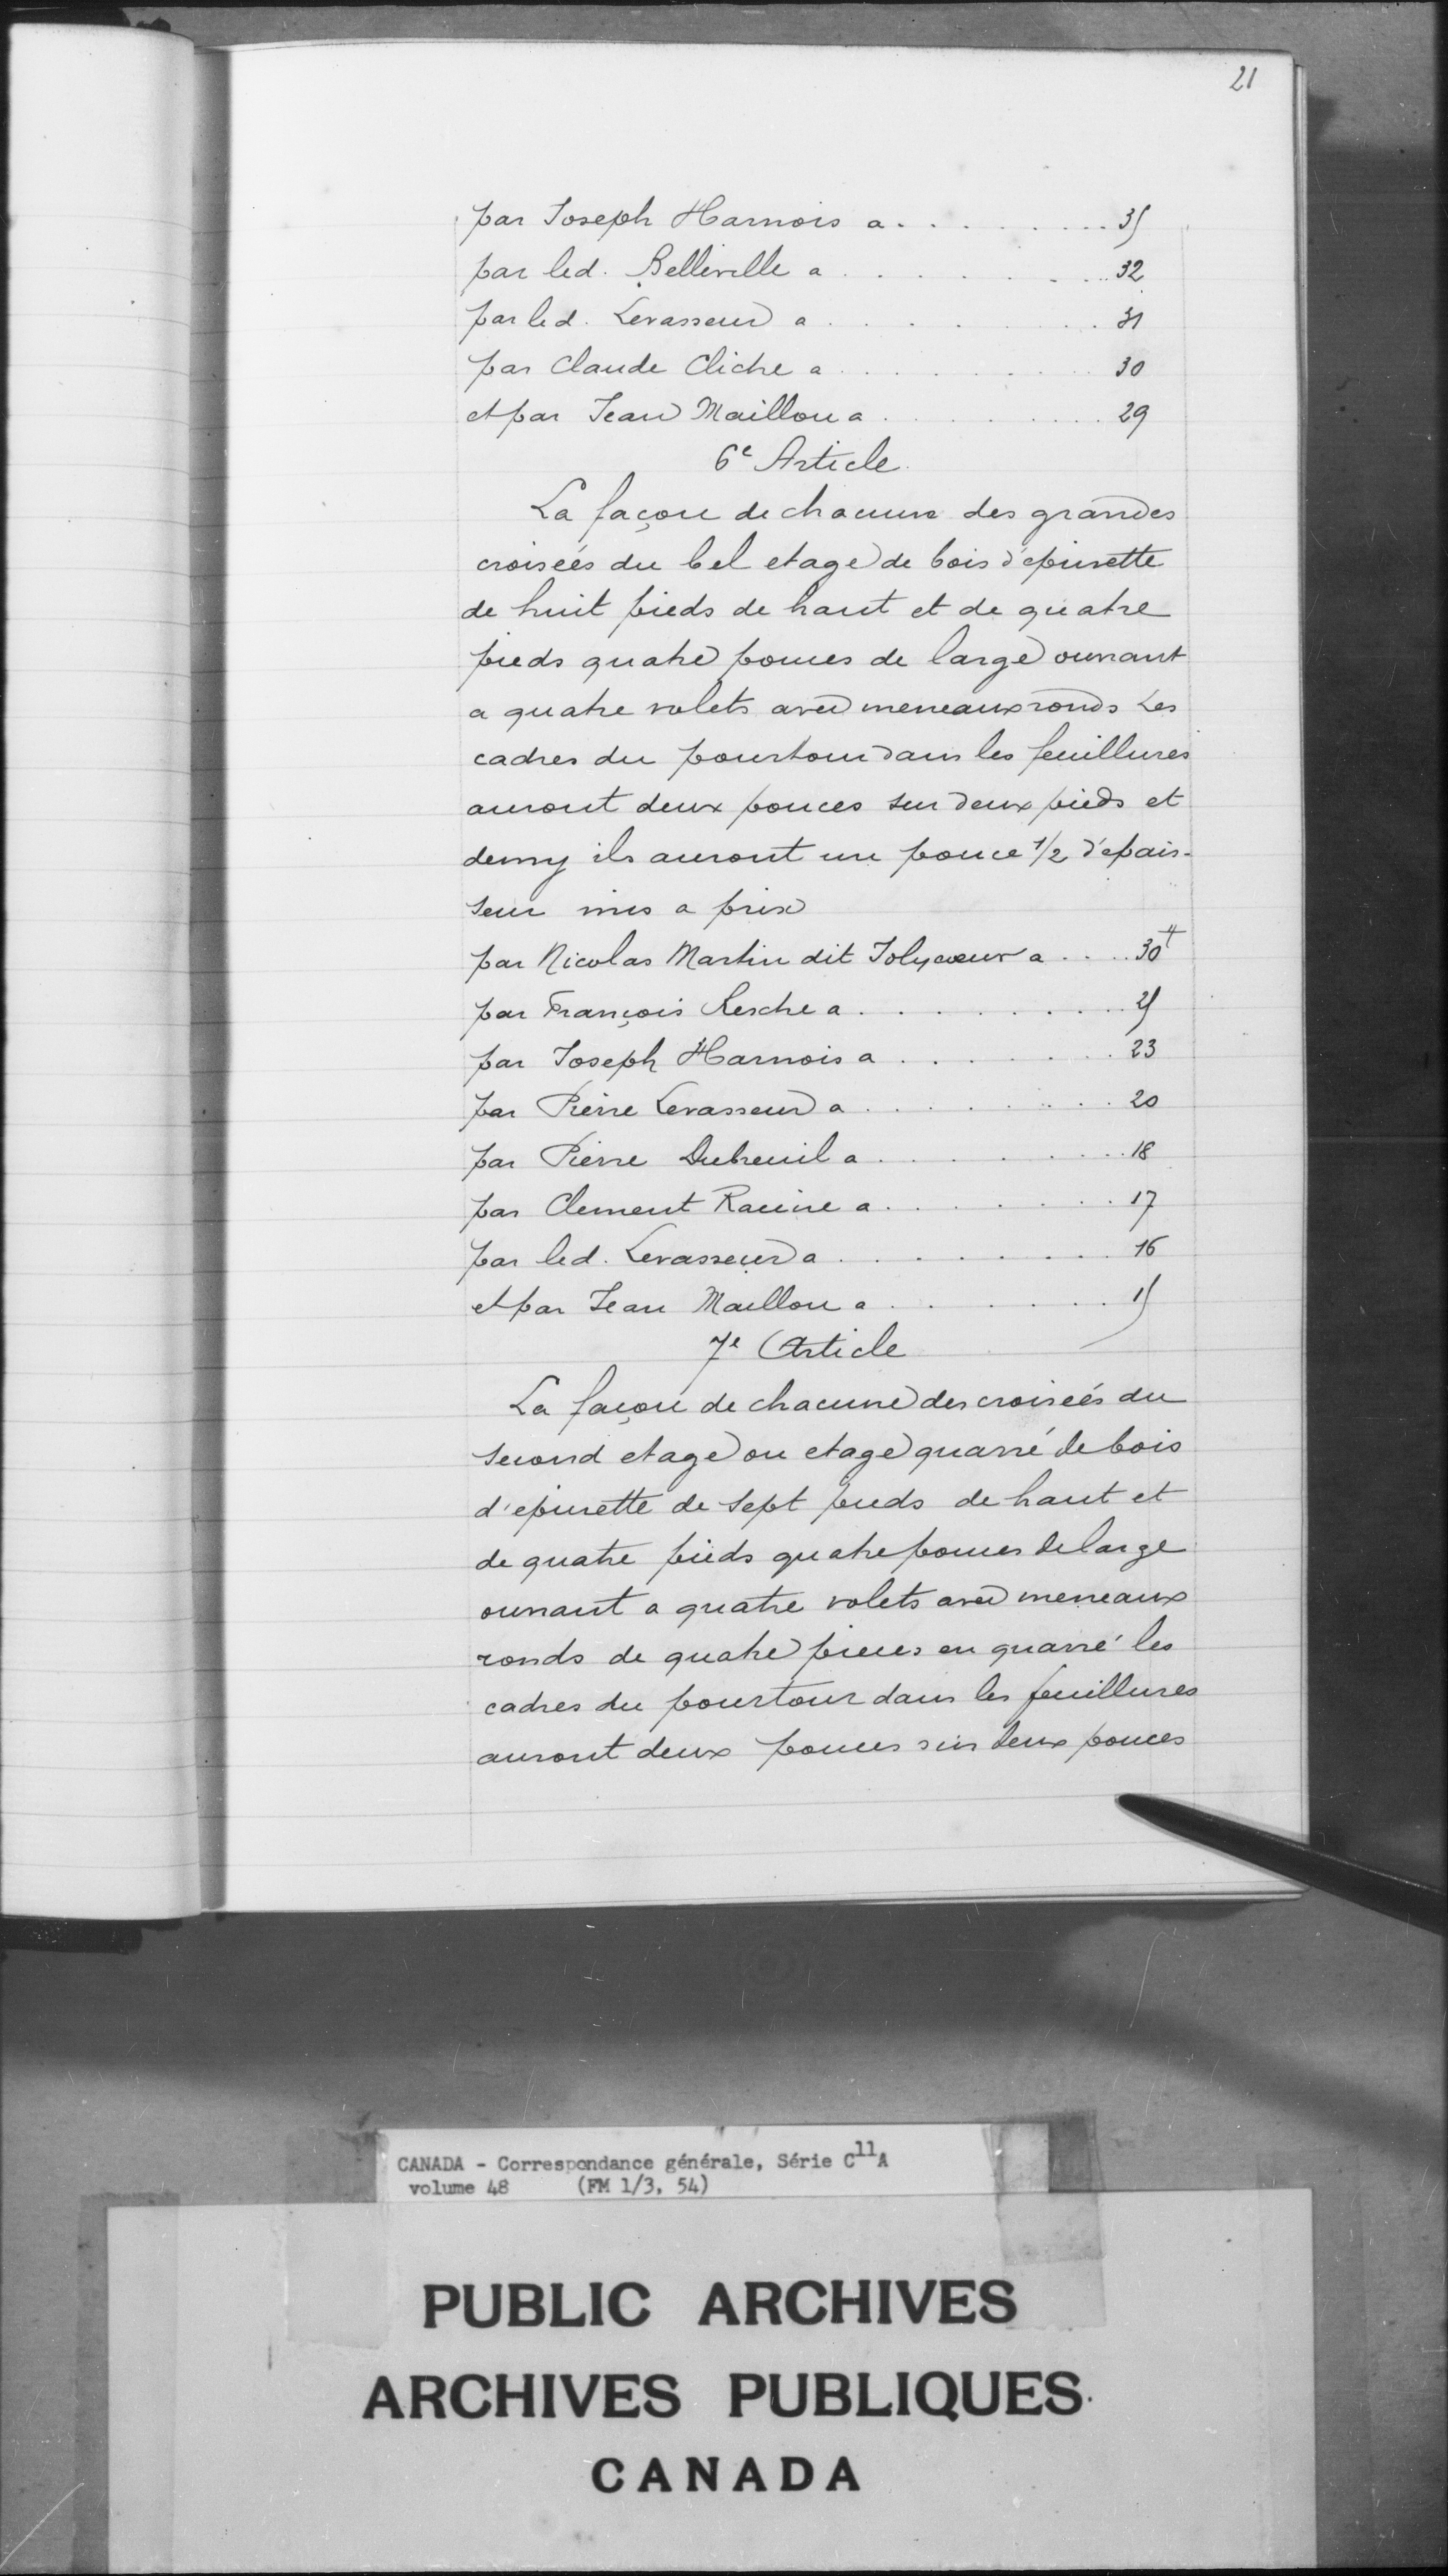 21
par Joseph Harnois a . . . . . . . . . 35
par led. Belleville a . . . . . . . . 32
par led. Levasseur a . . . . . . . . 31
par Claude Cliche a . . . . . . . . 30
et par Jean Maillou a . . . . . . . . 29
6e Article
La façon de chacune des grandes
croiseés du bel etage de bois d'epinette
de huit pieds de haut et de quatre
pieds quatre pouces de large ouvrant
a quatre volets avec meneaux ronds Les
cadres du pourtour dans les feuillures
auront deux pouces sur deux pieds et
demy ils auront un pouce 1/2 d'epais-
seur mis a prix
par Nicolas Martin dit Jolycoeur a . . . . 30#
par François Lesche a . . . . . . . . 25
par Joseph Harnois a . . . . . . . . 23
par Pierre Levasseur a . . . . . . . . 20
par Pierre Dubreuil a . . . . . . . . 18
par Clement Racine a . . . . . . . . 17
par led. Levasseur a . . . . . . . . 16
et par Jean Maillou a . . . . . . . . 15
7e Article
La façon de chacune des croiseés du
second etage ou etage quarré de bois
d'epinette de sept pieds de haut et
de quatre pieds quatre pouces de large
ouvrant a quatre volets avec meneaux
ronds de quatre pieces en quarré les
cadres du pourtour dans les feuillures
auront deux pouces sur deux pouces
CANADA - Correspondance générale, Série C11A
volume 48 (FM 1/3, 54)
PUBLIC ARCHIVES
ARCHIVES PUBLIQUES
CANADA